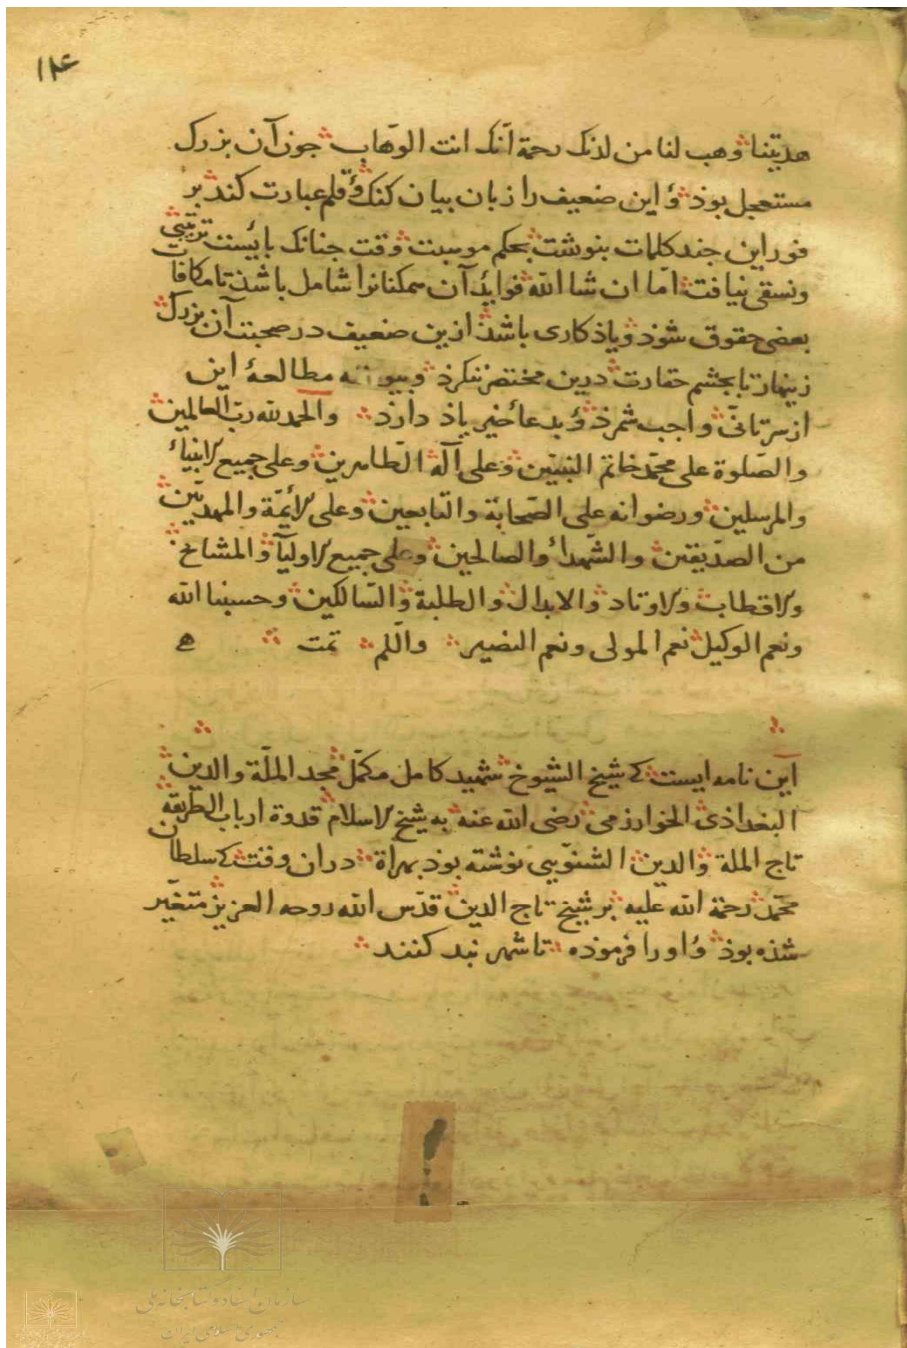 ۱۴۶
هدیتنا وهب لنا من لدنک رحمة انّک انت الوهّاب جون آن بزرک
مستعجل بوذ و این ضعیف را زبان بیان کنک و قلم عبارت کند بر
فور این جند کلمات بنوشت بحکم موسبت وقت جنانک بایست ترتیبی
ونسقی نیافت امّا ان شا الله فواید آن همکنانرا شامل باشذ تا مکافات
بعضی حقوق شوذ و یاذکاری باشذ ازین ضعیف در صحبت آن بزرک
زینهار تا بجشم حقارت درین مختصر ننکرذ وبیوسته مطالعۀ این
از سر تانّی واجب شمرذ و بدعاء خیر یاذ دارذ والحمد لله ربّ العالمین
والصّلوة علی محمّد خاتم النبیّین وعلی آله الطّاهرین وعلی جمیع الانبیاء
والمرسلین ورضوانه علی الصّحابة والتابعین وعلی الائمّة والمهدیّین
من الصدّیقین والشّهداء والصالحین وعلی جمیع الاولیآء والمشایخ
والاقطاب والاوتاد والابدال والطلبة والسّالکین وحسبنا الله
ونعم الوکیل نعم المولی ونعم النصیر والّلم تمت
این نامه ایست که شیخ الشیوخ شهید کامل مکمّل مجد الملّة والدین
البغداذی الخوارزمی رضی الله عنه به شیخ الاسلام قدوة ارباب الطریقه
تاج الملة والدین الشنوّیی نوشته بوذ بهراة دران وقت که سلطان
محمّد رحمة الله علیه بر شیخ تاج الدین قدّس الله روحه العزیز متغیّر
شذه بوذ و او را فرموذه تا شهر بند کنند
سازمان اسناد و کتابخانه ملی
جمهوری اسلامی ایران